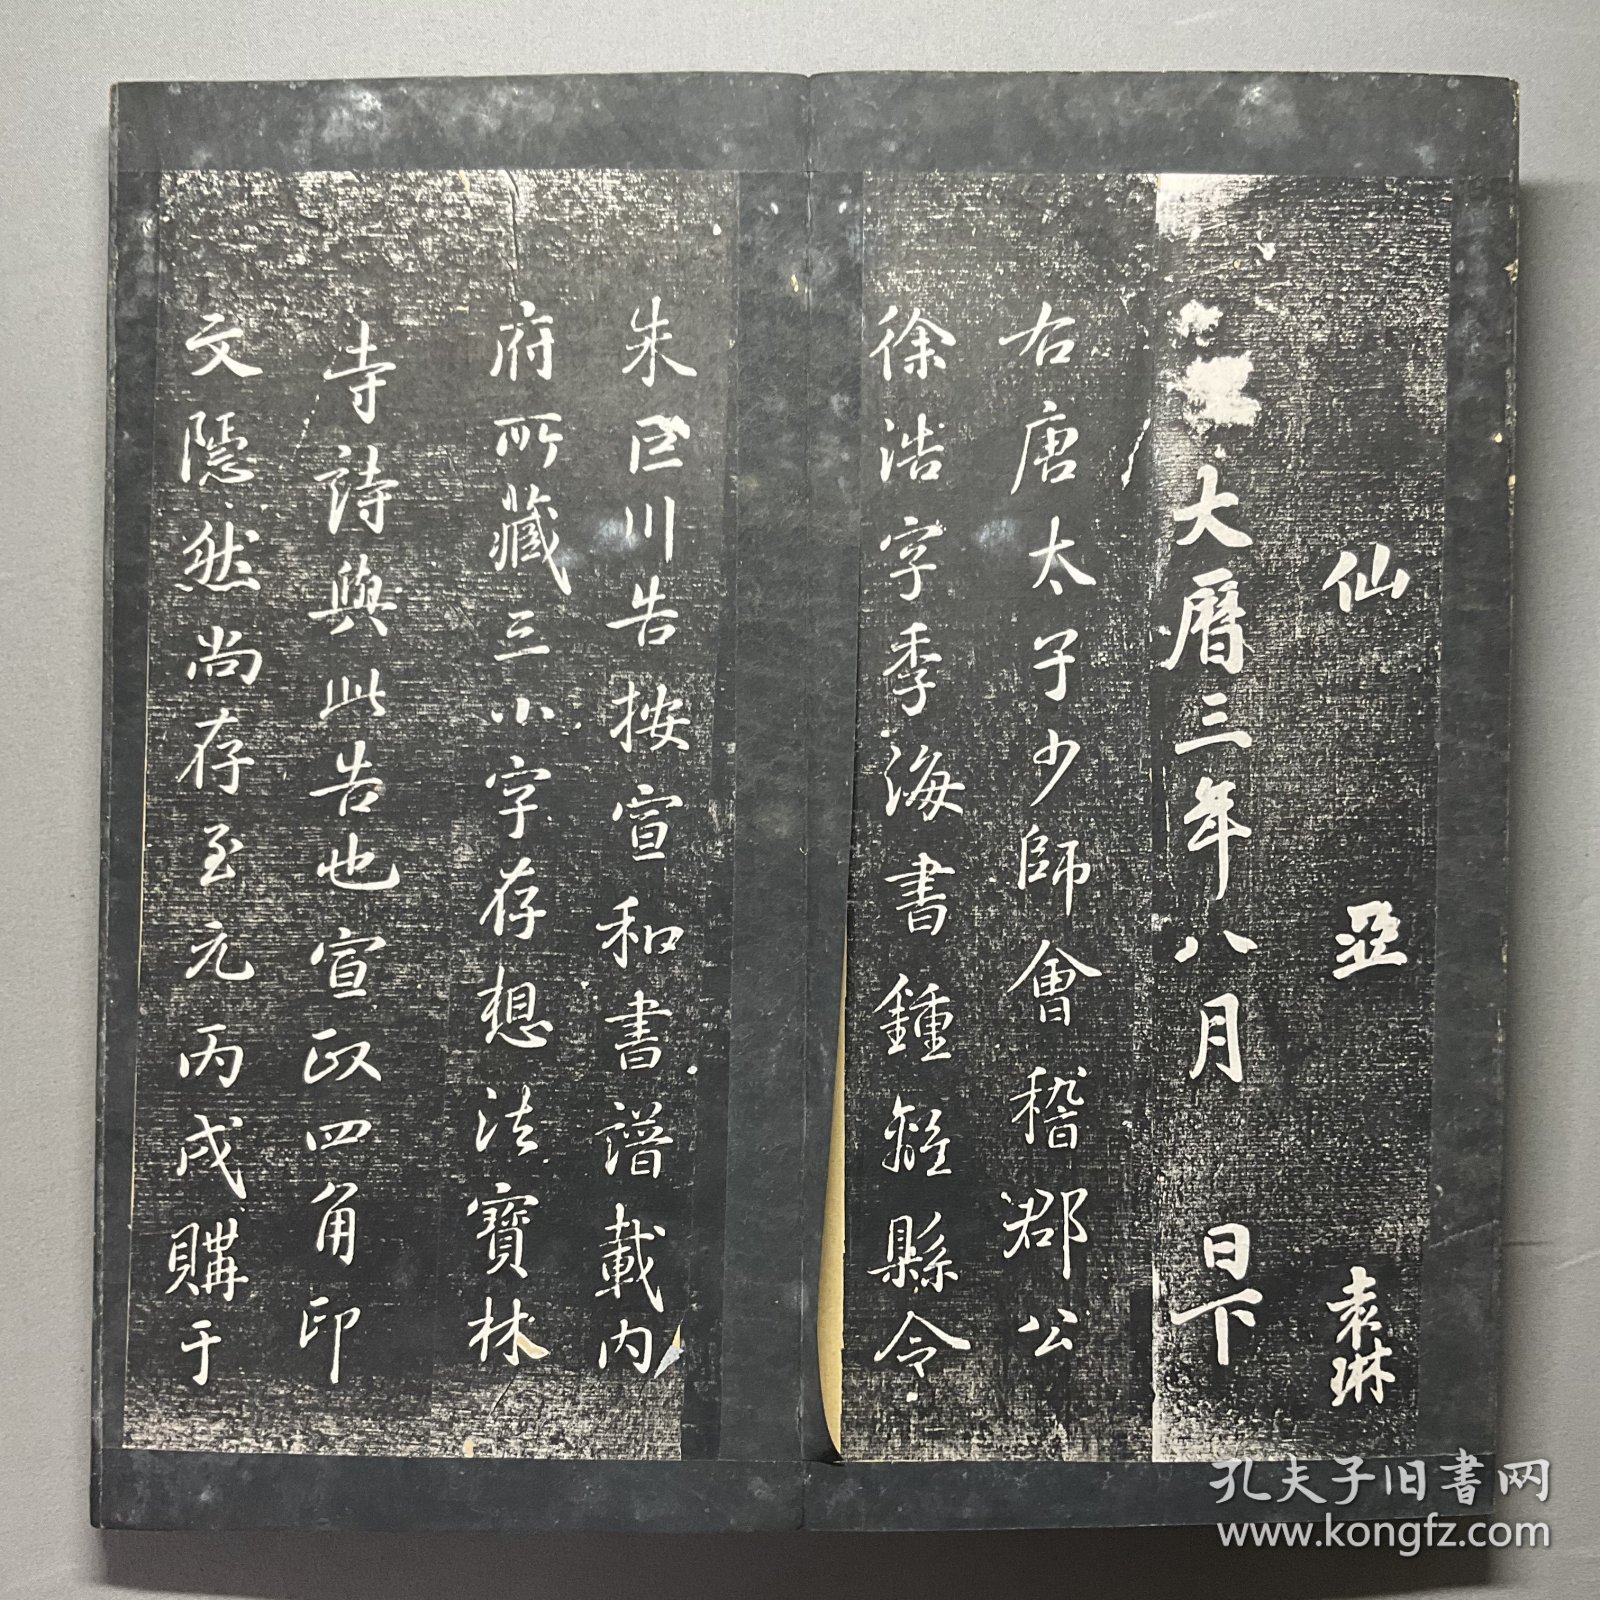 仙 亞 袁琳
大曆三年八月 日下
右唐太子少師會稽郡公
徐浩字季海書鍾離縣令
朱巨川告按宣和書譜載內
府所藏三小字存想法寶林
寺詩與此告也宣政四角印
文隱然尚存至元丙戌購于
孔夫子旧書网
www.kongfz.com